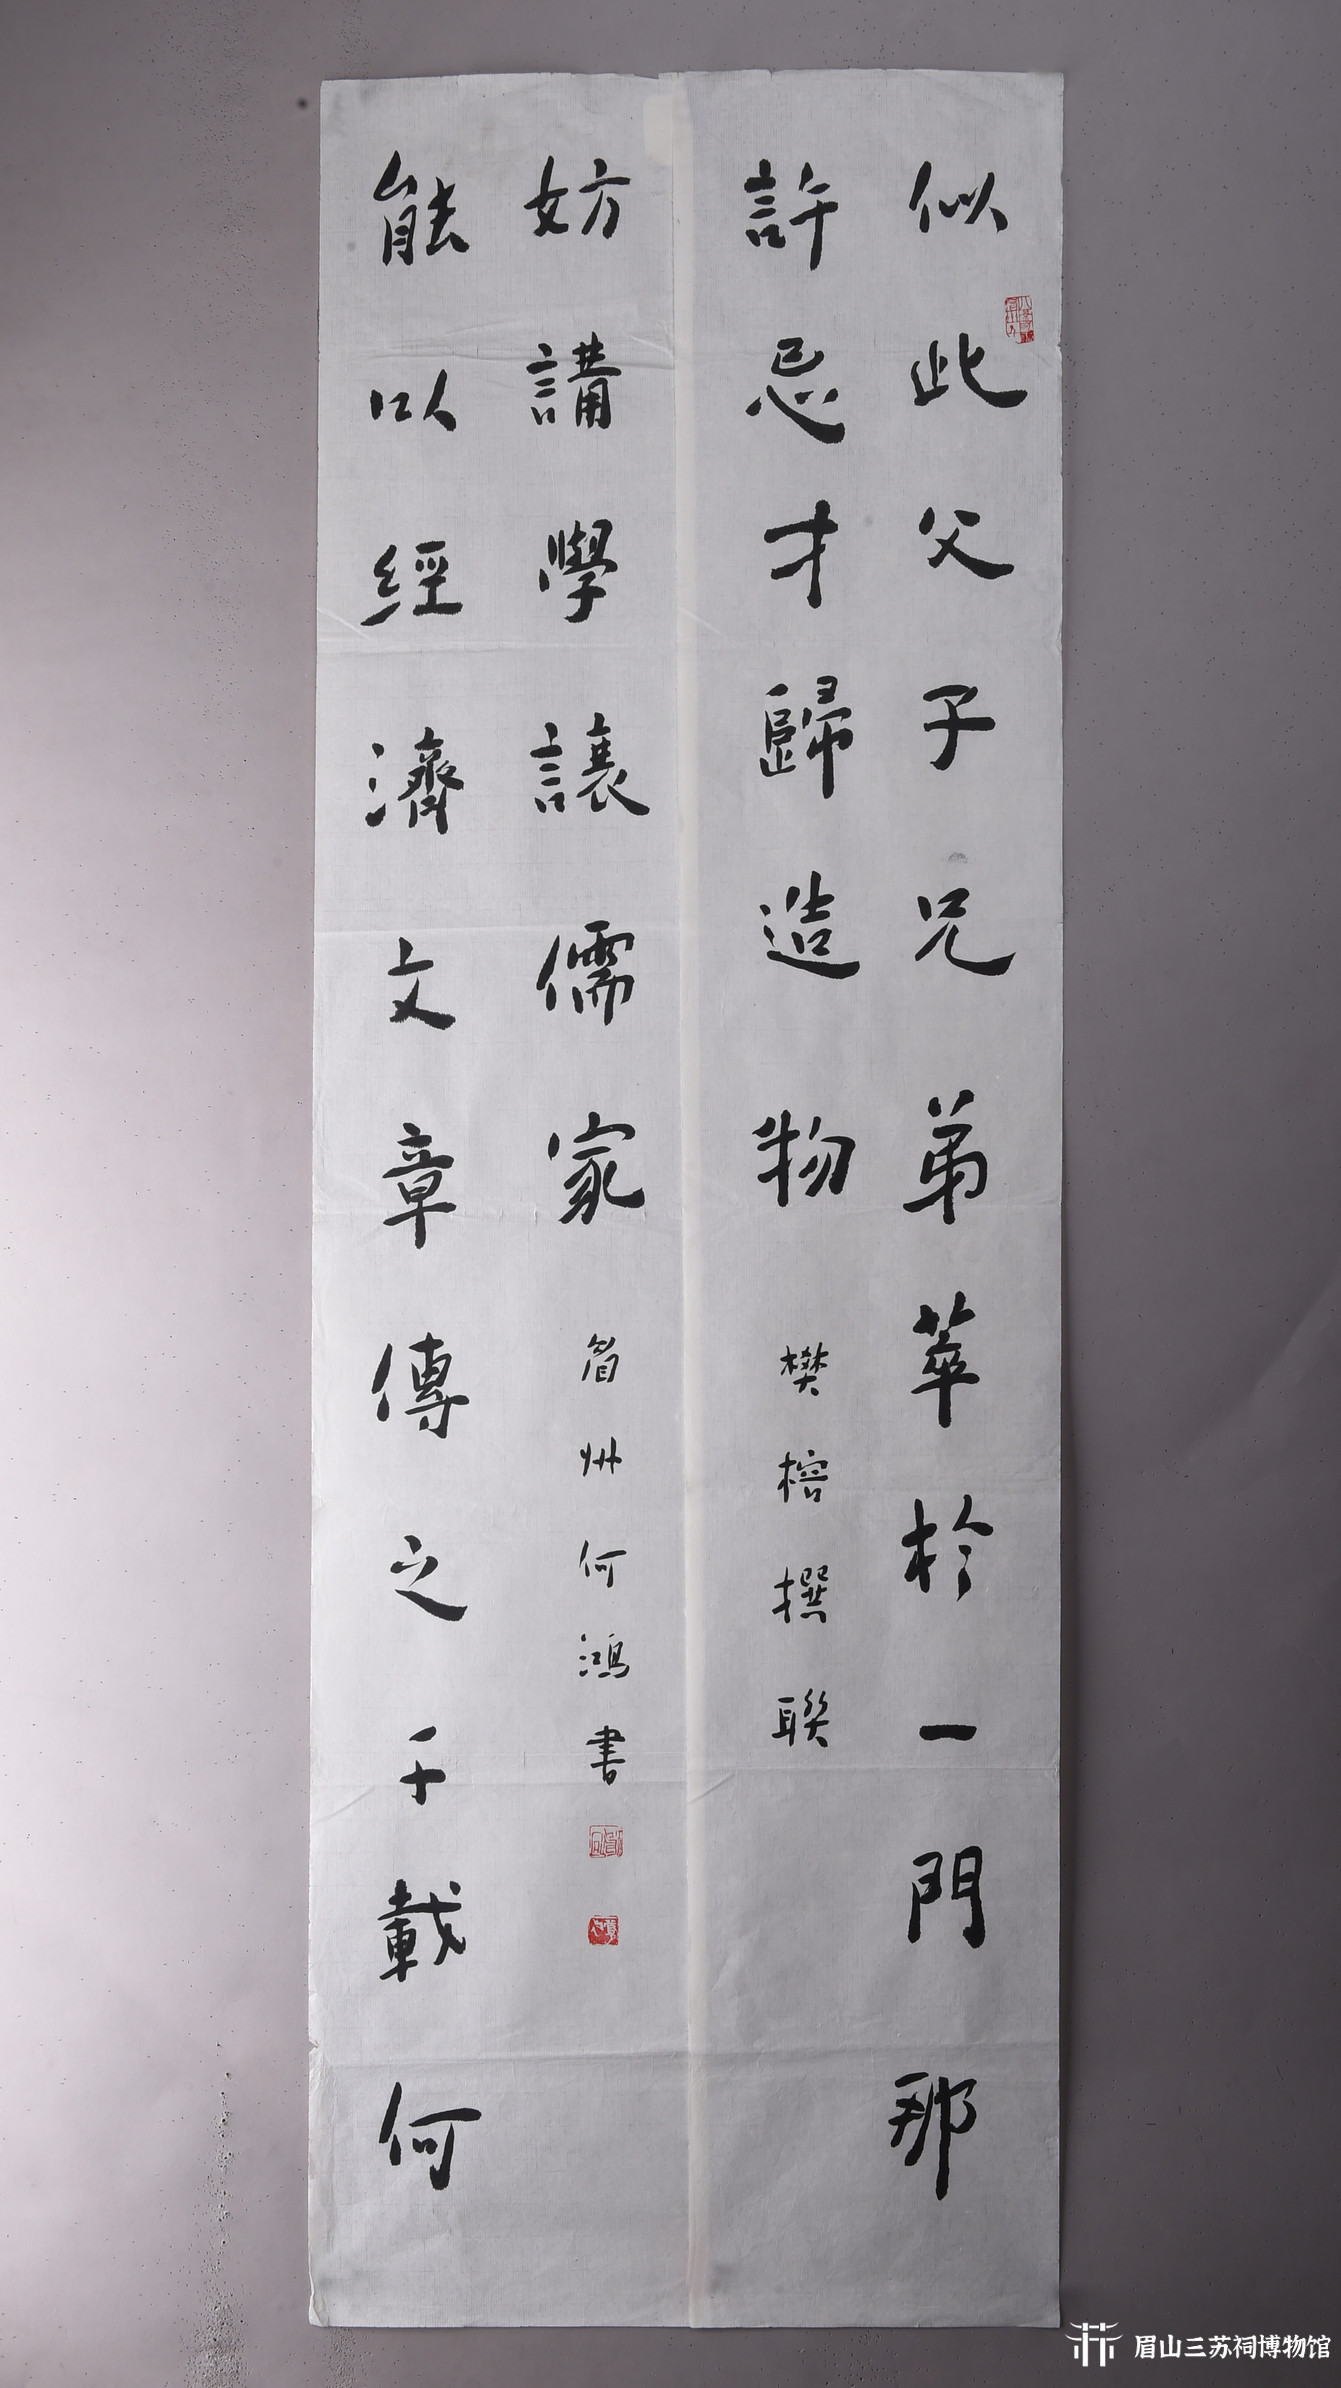 似此父子兄弟萃於一門那
許忌才歸造物
樊榕撰聯
能以經濟文章傳之千載何
妨講學讓儒家
眉州何鴻書
眉山三苏祠博物馆